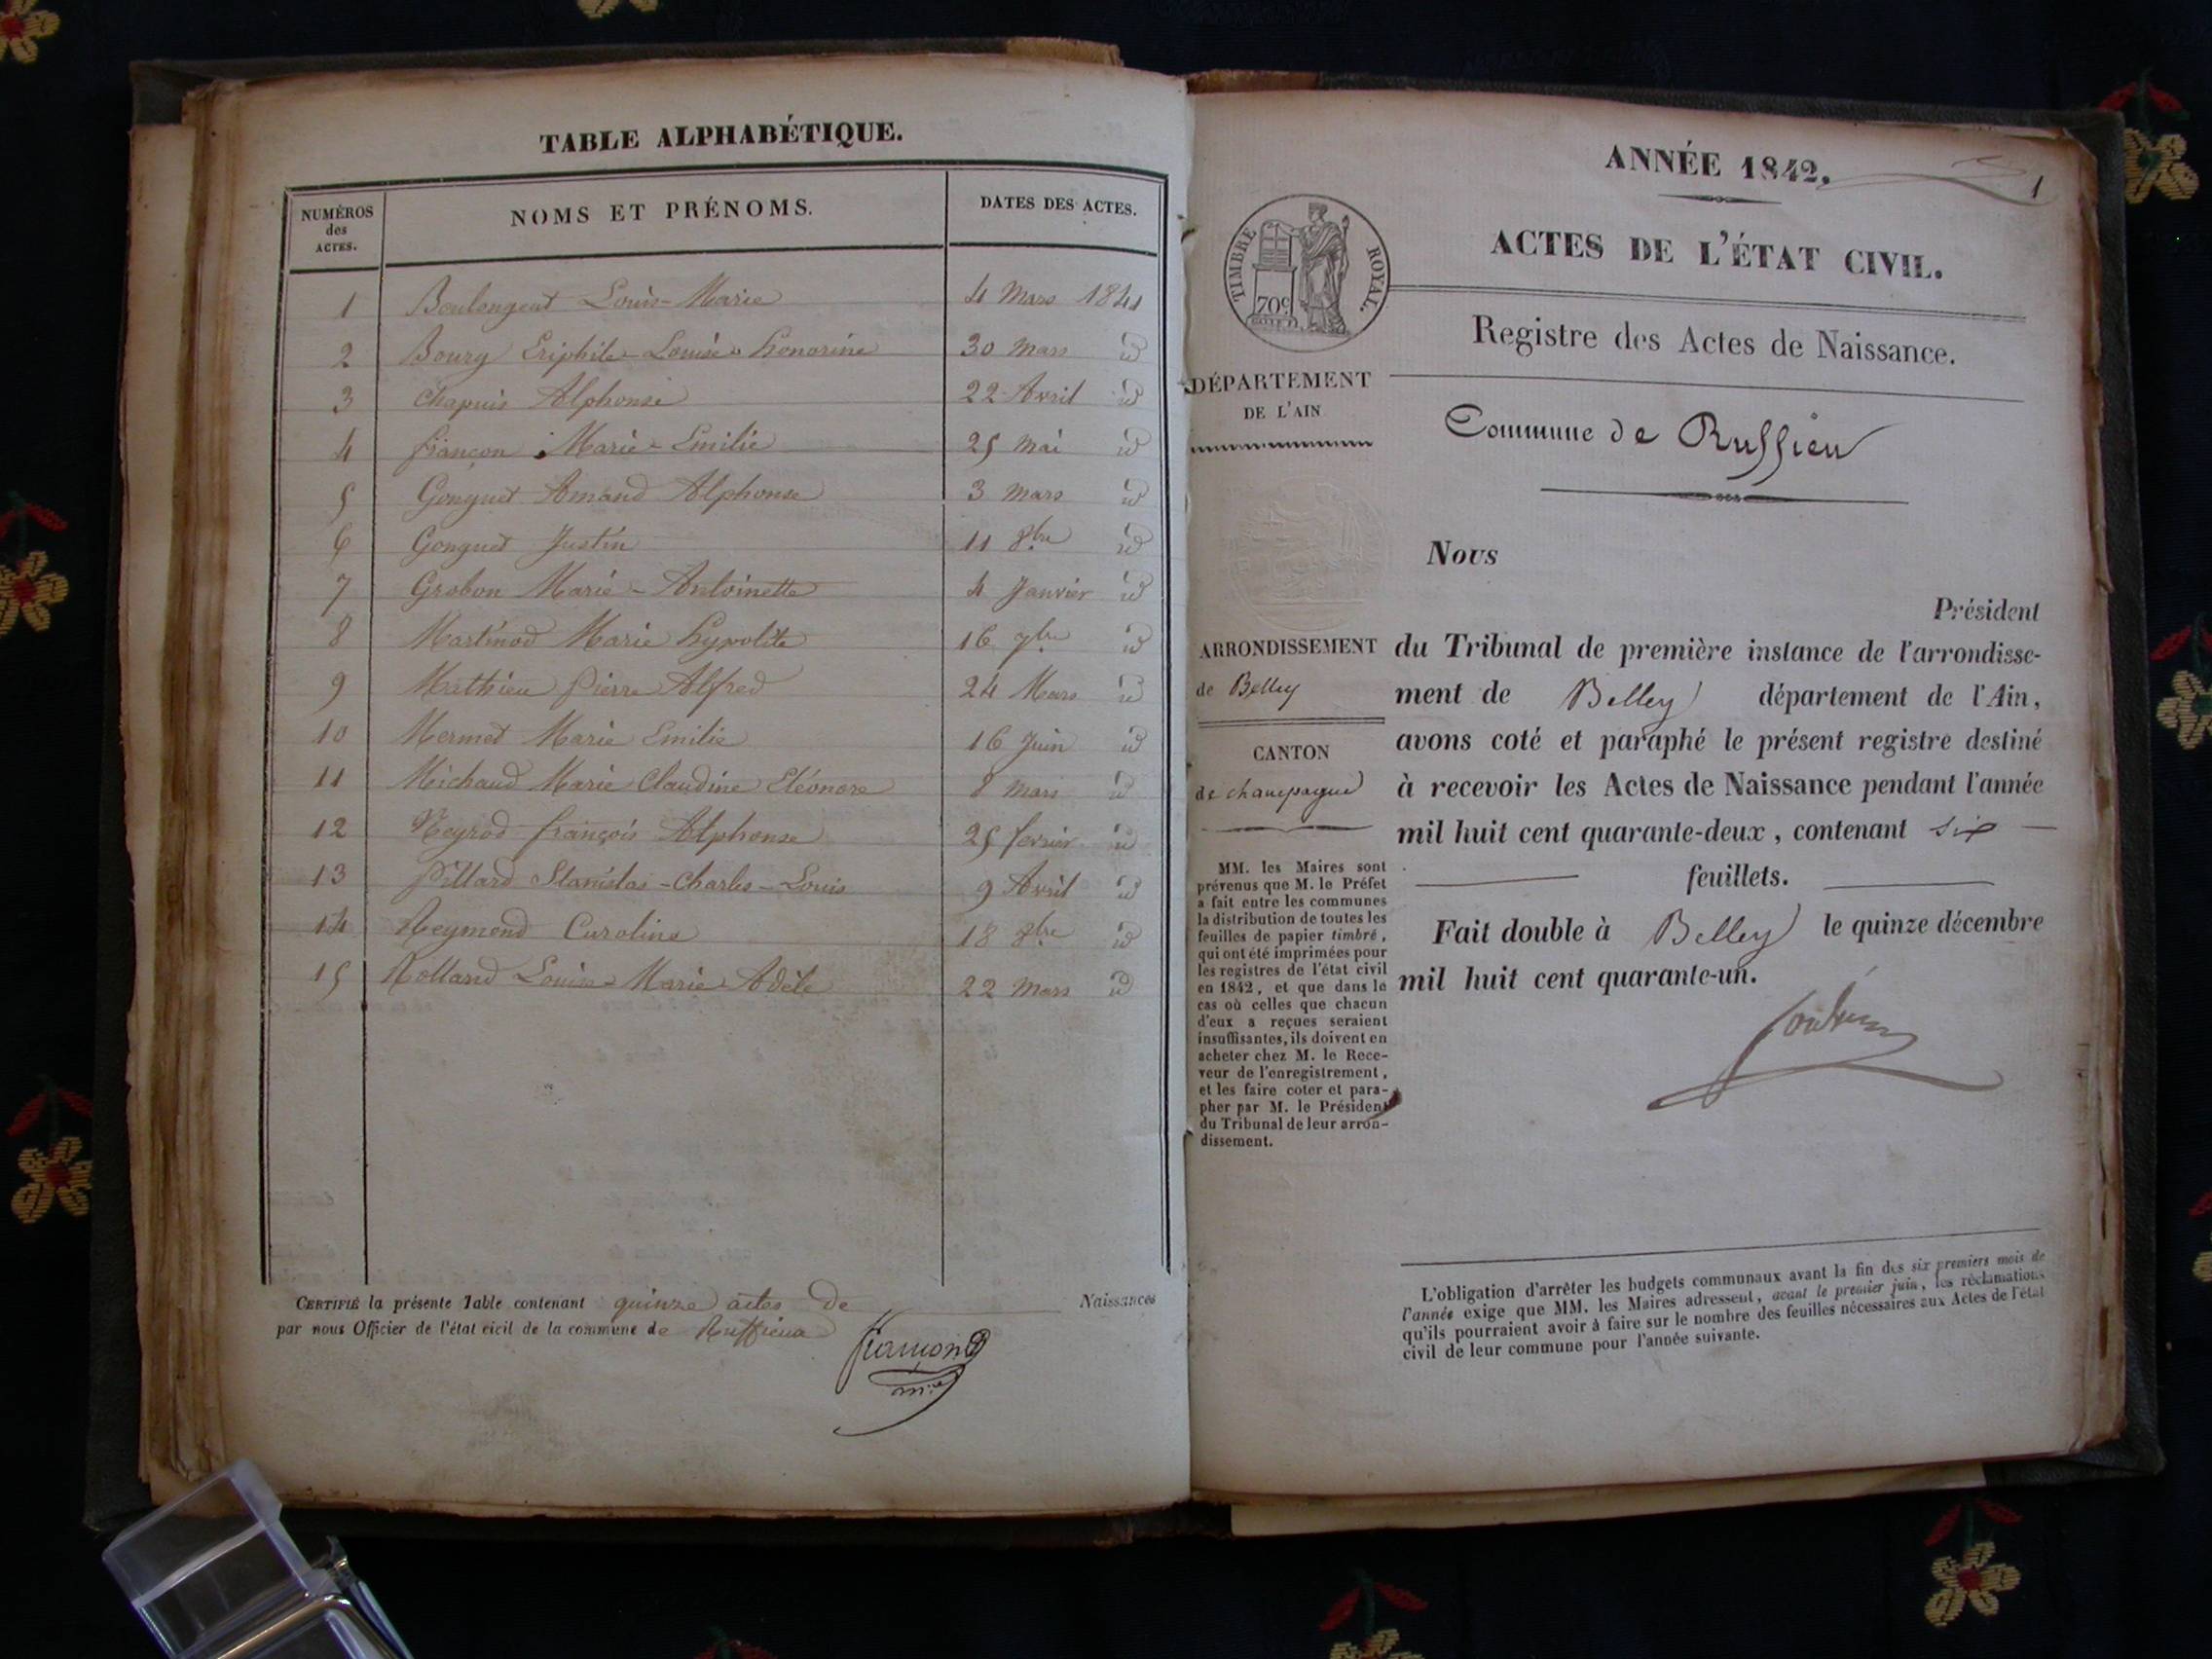 TABLE ALPHABÉTIQUE.
NUMÉROS des ACTES.
NOMS ET PRÉNOMS.
DATES DES ACTES.
1 Boulongeat Louis-Marie 4 Mars 1841
2 Bourg Eriphile-Louise-honorine 30 Mars id
3 Chapuis Alphonse 22 Avril id
4 françon Marie-Emilie 25 Mai id
5 Gonguet Amand Alphonse 3 Mars id
6 Gonguet Justin 11 8bre id
7 Grobon Marie-Antoinette 4 Janvier id
8 Martinod Marie hypolite 16 7bre id
9 Mathieu Pierre Alfred 24 Mars id
10 Mermet Marie Emilie 16 Juin id
11 Michaud Marie Claudine Eléonore 8 Mars id
12 Neyrod françois Alphonse 25 fevrier id
13 Pillard Stanislas-Charles-Louis 9 Avril id
14 Reymond Caroline 18 8bre id
15 Rolland Louise-Marie Adèle 22 Mars id
CERTIFIÉ la présente Table contenant quinze actes de Naissances
par nous Officier de l'état civil de la commune de Ruffieux
ANNÉE 1842.
1
ACTES DE L'ÉTAT CIVIL.
TIMBRE ROYAL.
70c
Registre des Actes de Naissance.
DÉPARTEMENT
DE L'AIN
Commune de Ruffieu
Nous
Président
ARRONDISSEMENT
de Belley
CANTON
de champagne
du Tribunal de première instance de l'arrondisse-
ment de Belley département de l'Ain,
avons coté et paraphé le présent registre destiné
à recevoir les Actes de Naissance pendant l'année
mil huit cent quarante-deux, contenant six
feuillets.
Fait double à Belley le quinze décembre
mil huit cent quarante-un.
MM. les Maires sont
prévenus que M. le Préfet
a fait entre les communes
la distribution de toutes les
feuilles de papier timbré,
qui ont été imprimées pour
les registres de l'état civil
en 1842, et que dans le
cas où celles que chacun
d'eux a reçues seraient
insuffisantes, ils doivent en
acheter chez M. le Rece-
veur de l'enregistrement,
et les faire coter et para-
pher par M. le Président
du Tribunal de leur arron-
dissement.
L'obligation d'arrêter les budgets communaux avant la fin des six premiers mois de
l'année exige que MM. les Maires adressent, avant le premier juin, les réclamations
qu'ils pourraient avoir à faire sur le nombre des feuilles nécessaires aux Actes de l'état
civil de leur commune pour l'année suivante.